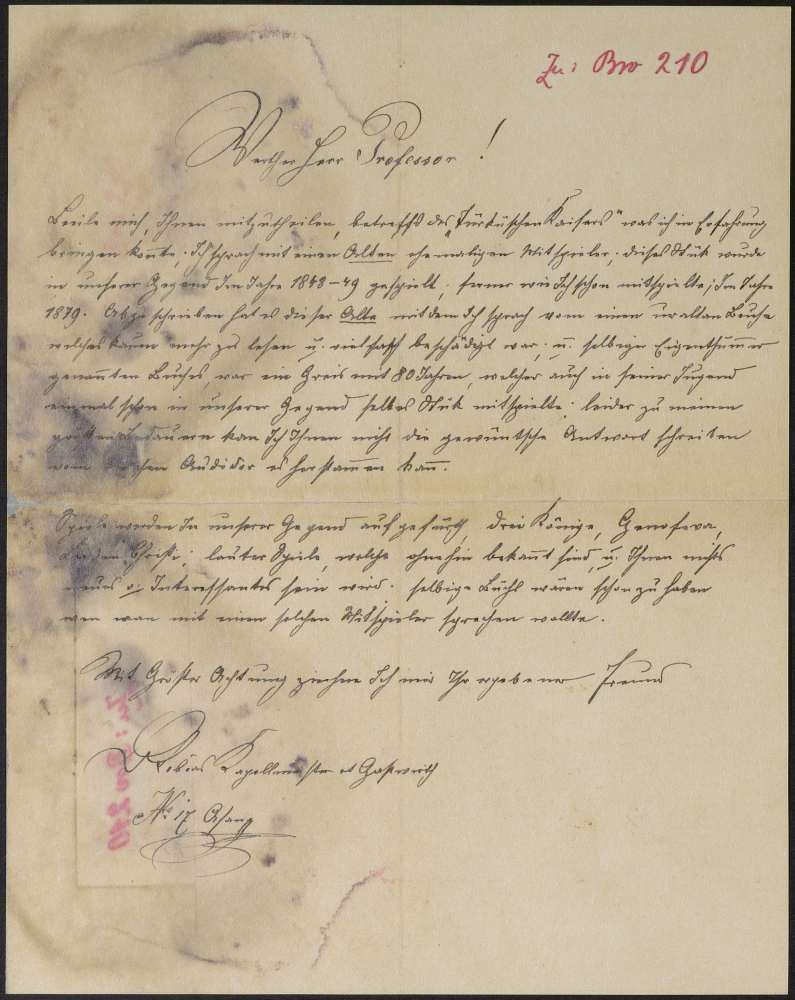 Zu: Bro 210
Werther Herr Professor!
Beeile mich, Ihnen mitzutheilen, betreffs des "Türkischen Kaisers" was ich in Erfahrung
bringen konte. Ich sprach mit einen Alten ehemaligen Mitspieler; dieses Stük wurde
in unserer Gegend Im Jahre 1848-49 gespielt; ferner wie Ich schon mitspielte; Im Jahre
1879. Abgeschrieben hat es dieser Alte mit dem Ich sprach vom einen uralten Buche
welches kaum mehr zu lesen u. vielfach beschädigt war; u. selbiger Eigenthümmer
genannten Buches, war ein Greis mit 80 Jahren, welcher auch in seiner Jugend
einmal schon in unserer Gegend selbes Stük mitspielte; leider zu meinen
größten Bedauern kan Ich Ihnen nicht die gewüntsche Antwort schreiben
vom Auditor es herstammen kann.
Spiele werden In unserer Gegend aufgefürth, drei Könige, Genofeva,
Leiden Christi; lauter Spiele, welche ohnehin bekannt sind, u. Ihnen nichts
neues o. Interessantes sein wird. selbige Büchl wären schon zu haben
wen man mit einen solchen Mitspieler sprechen wollte.
Mit Größter Achtung zeichne Ich mich Ihr ergebener Freund
Tobias Kapellmeister et Gastwirth
No 17 Asang
Zu: Bro 210